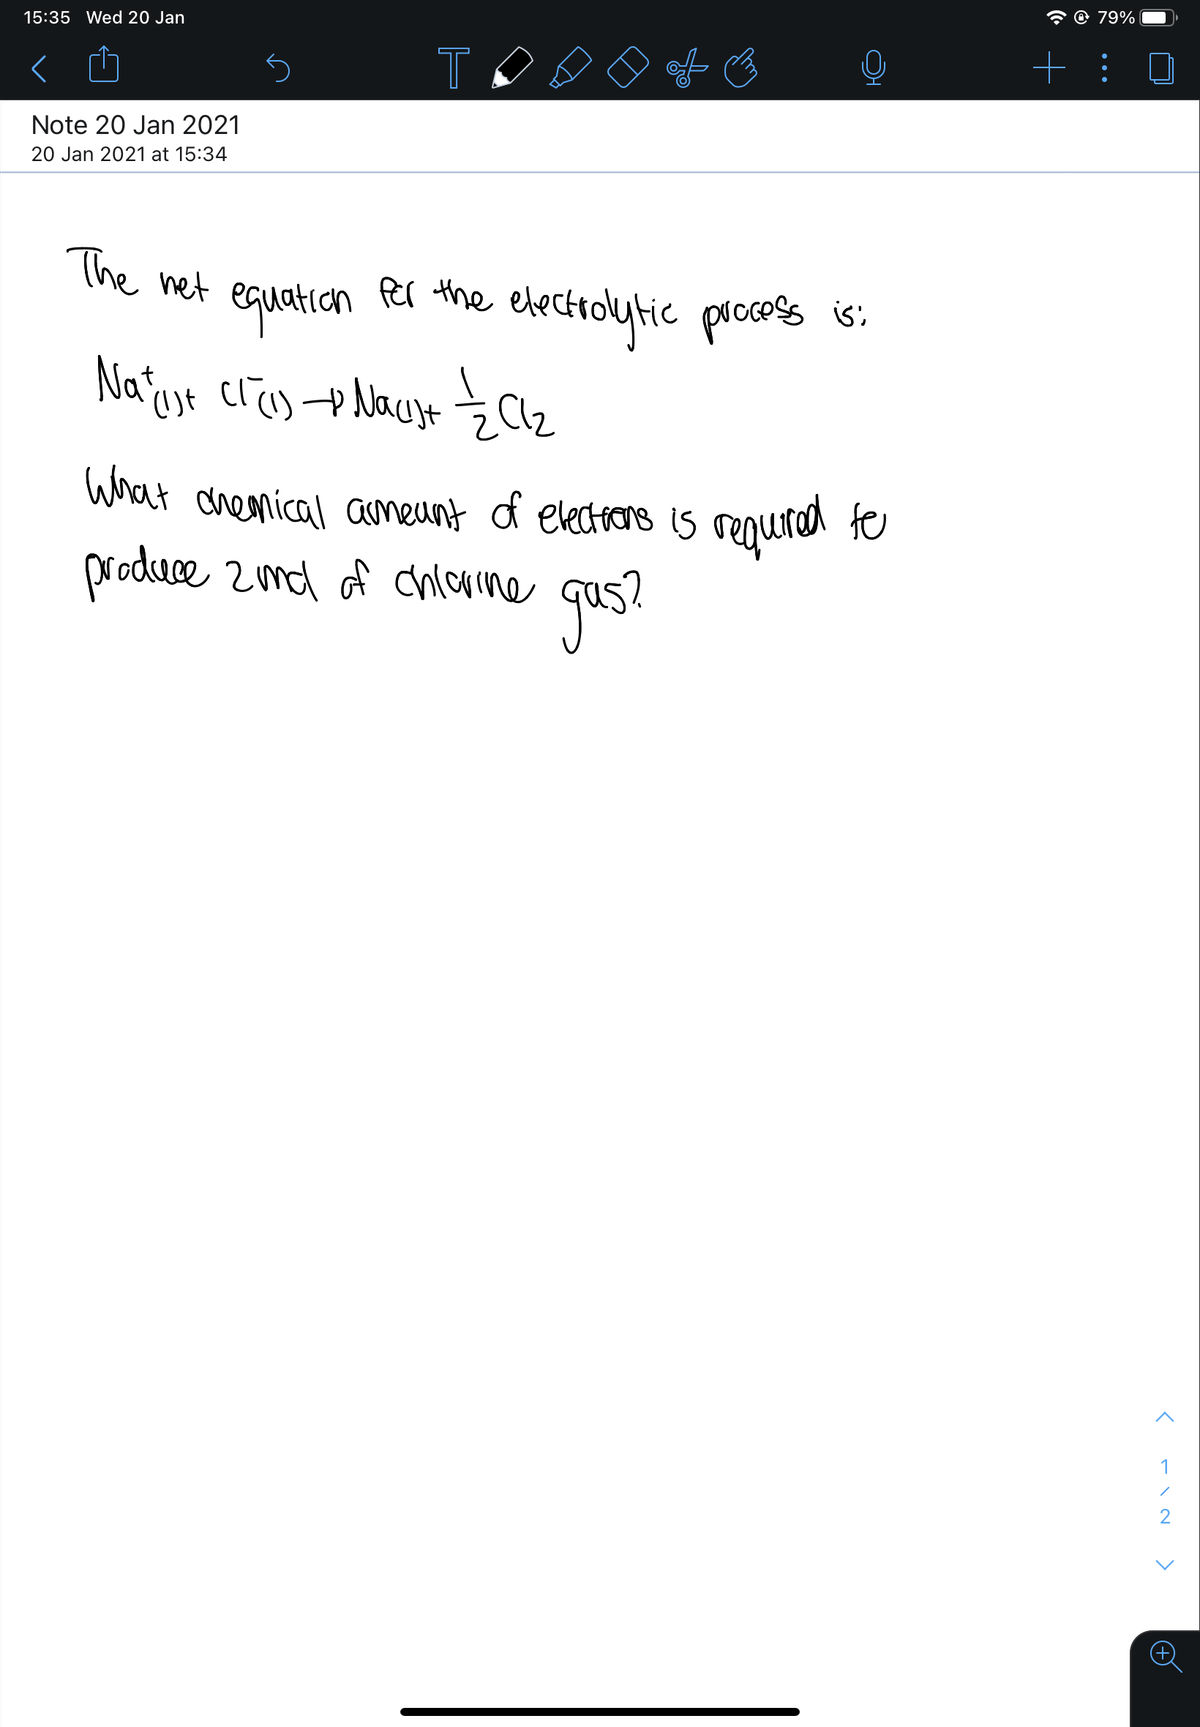 15:35 Wed 20 Jan
79%
Note 20 Jan 2021
20 Jan 2021 at 15:34
The net equation for the electrolytic process is:
Na⁺(l) + Cl⁻(l) → Na(l) + 1/2 Cl₂
What chemical amount of electrons is required to
produce 2 mol of chlorine gas?
1
/
2